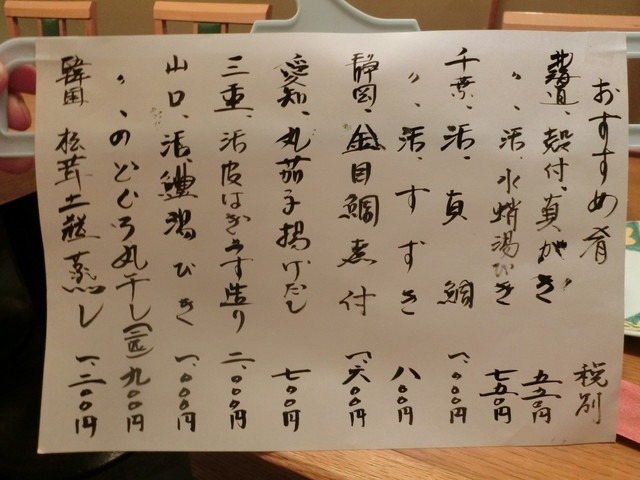 おすすめ肴 税別
北海道、殻付、真がき 五五〇円
〃、活、水蛸湯びき 七五〇円
千葉、活、真鯛 一、〇〇〇円
〃、活、すずき 八〇〇円
静岡、金目鯛煮付 一、六〇〇円
愛知、丸茄子揚げだし 七〇〇円
三重、活皮はぎうす造り 二、〇〇〇円
山口、活、鱧湯びき 一、〇〇〇円
〃、のどぐろ丸干し(一匹) 九〇〇円
韓国 松茸土瓶蒸し 一、二〇〇円